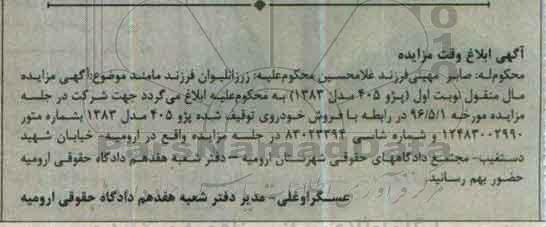 آگهی ابلاغ وقت مزایده
محکوم‌له: صابر مهینی فرزند غلامحسین محکوم‌علیه: زرزاتلیوان فرزند مامند موضوع: آگهی مزایده
مال منقول نوبت اول (پژو ۴۰۵ مدل ۱۳۸۳) به محکوم‌علیه ابلاغ می‌گردد جهت شرکت در جلسه
مزایده مورخه ۹۶/۵/۱ در رابطه با فروش خودروی توقیف شده پژو ۴۰۵ مدل ۱۳۸۳ بشماره متور
۱۲۴۸۳۰۰۲۹۹۰ و شماره شاسی ۸۳۰۲۳۳۹۴ در جلسه مزایده واقع در ارومیه- خیابان شهید
دستغیب- مجتمع دادگاههای حقوقی شهرستان ارومیه – دفتر شعبه هفدهم دادگاه حقوقی ارومیه
حضور بهم رسانید.
عسگراوغلی- مدیر دفتر شعبه هفدهم دادگاه حقوقی ارومیه
ParsNamadData